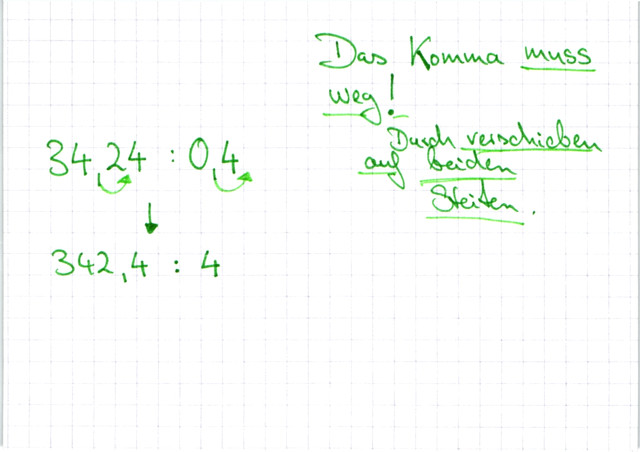 Das Komma muss
weg!
Durch verschieben
auf beiden
Steiten.
34,24 : 0,4
342,4 : 4